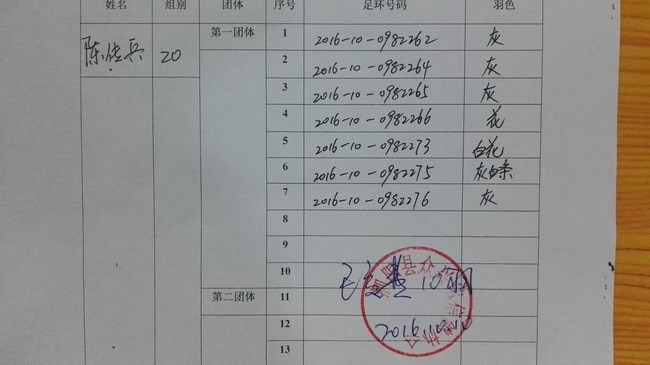 姓名 组别 团体 序号 足环号码 羽色
陈传兵 20 第一团体 1 2016-10-0982262 灰
2 2016-10-0982264 灰
3 2016-10-0982265 灰
4 2016-10-0982266 花
5 2016-10-0982273 白花
6 2016-10-0982275 灰白条
7 2016-10-0982276 灰
8
9
10
第二团体 11
12
13